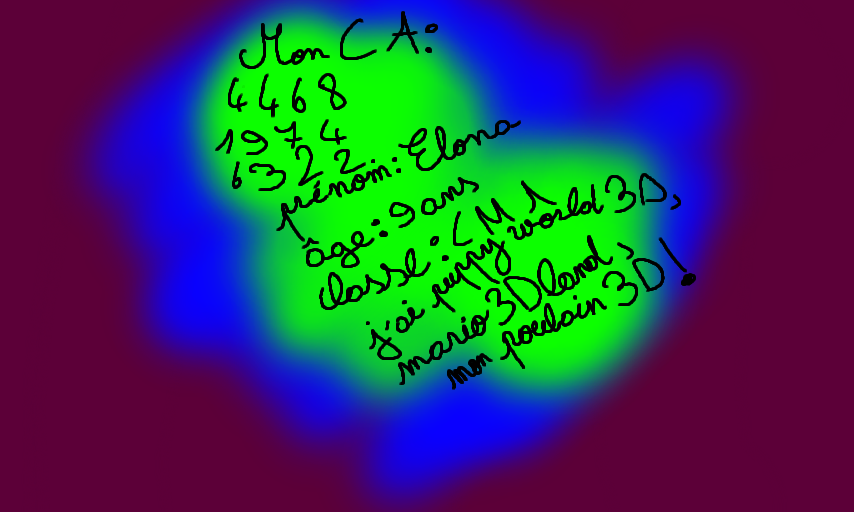 Mon CA:
4468
1974
6322
prénom: Elona
âge: 9 ans
classe: CM1
j'ai puppy world 3D,
mario 3D land,
mon poulain 3D!